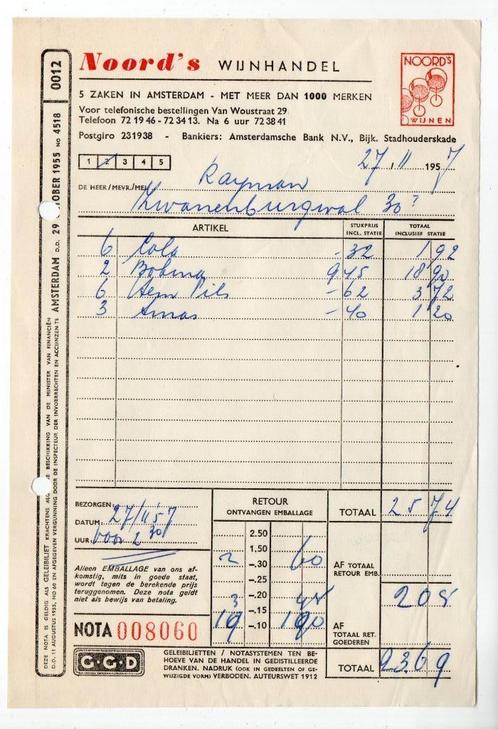 Noord's WIJNHANDEL
NOORD'S
WIJNEN
5 ZAKEN IN AMSTERDAM - MET MEER DAN 1000 MERKEN
Voor telefonische bestellingen Van Woustraat 29
Telefoon 72 19 46 - 72 34 13. Na 6 uur 72 38 41
Postgiro 231938 - Bankiers: Amsterdamsche Bank N.V., Bijk. Stadhouderskade
1 2 3 4 5
27 . 11 1957
DE HEER/MEVR./MEJ. Rayman
Zwanenburgwal 30
ARTIKEL STUKPRIJS INCL. STATIE TOTAAL INCLUSIEF STATIE
6 Cola - 32 1 92
2 Bokma 9 45 18 90
6 Hem Pils - 62 3 72
3 - 40 1 20
BEZORGEN
DATUM 27/11 57
UUR voor 2 30
RETOUR
ONTVANGEN EMBALLAGE
TOTAAL 25 74
2.50
1.50
2 —.30 60
—.25
—.20
3 —.15 45
19 —.10 190
AF TOTAAL
RETOUR EMB.
205
AF
TOTAAL RET.
GOEDEREN
TOTAAL 2369
Alleen EMBALLAGE van ons af-
komstig, mits in goede staat,
wordt tegen de berekende prijs
teruggenomen. Deze nota geldt
niet als bewijs van betaling.
NOTA 008060
G-G-D
GELEIBILJETTEN / NOTASYSTEMEN TEN BE-
HOEVE VAN DE HANDEL IN GEDISTILLEERDE
DRANKEN. NADRUK (OOK IN GEDEELTEN OF GE-
WIJZIGDE VORM) VERBODEN. AUTEURSWET 1912
0012
AMSTERDAM D.D. 29 OKTOBER 1955 NO 4518
DEZE NOTA IS GELDIG ALS GELEIBILJET KRACHTENS ALG. BESCHIKKING VAN DE MINISTER VAN FINANCIËN
D.D. 11 AUGUSTUS 1955, NO 60 EN AFGEGEVEN VERGUNNING DOOR DE INSPECTEUR DER INVOERRECHTEN EN ACCIJNZEN TE